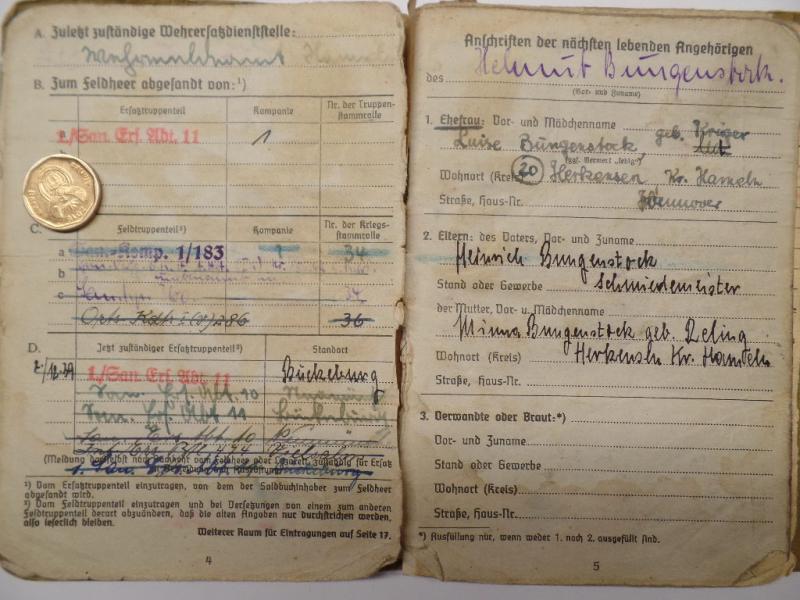 A. Zuletzt zuständige Wehrersatzdienststelle:
Wehrmeldeamt Hameln
B. Zum Feldheer abgesandt von:¹)
Ersatztruppenteil
Kompanie
Nr. der Truppen-
stammrolle
a
1./San. Ers. Abt. 11
1
b
c
C.
Feldtruppenteil²)
Kompanie
Nr. der Kriegs-
stammrolle
a
San.-Komp. 1/183
1
34
b
c
34
Orts Kdtr. 286
36
D.
Jetzt zuständiger Ersatztruppenteil²)
Standort
1./San. Ers. Abt. 11
Bückeburg
San. Ers. Abt. 10
San. Ers. Abt. 11
Bückeburg
(Meldung daselbst nach Rückkehr vom Feldheer oder Lazarett, zuständig für Ersatz
¹) Vom Ersatztruppenteil einzutragen, von dem der Soldbuchinhaber zum Feldheer
abgesandt wird.
²) Vom Feldtruppenteil einzutragen und bei Versetzungen von einem zum anderen
Feldtruppenteil derart abzuändern, daß die alten Angaben nur durchstrichen werden,
also leserlich bleiben.
Weiterer Raum für Eintragungen auf Seite 17.
4
Anschriften der nächsten lebenden Angehörigen
des Helmut Bungenstock.
(Vor- und Zuname)
1. Ehefrau: Vor- und Mädchenname
Luise Bungenstock geb. Krüger
(ggf. Vermerk „ledig“)
Wohnort (Kreis) 20 Herkensen Kr. Hameln
Straße, Haus-Nr. Hannover
2. Eltern: des Vaters, Vor- und Zuname
Heinrich Bungenstock
Stand oder Gewerbe Schmiedemeister
der Mutter, Vor- u. Mädchenname
Minna Bungenstock geb. Reling
Wohnort (Kreis) Herkensen Kr. Hameln
Straße, Haus-Nr.
3. Verwandte oder Braut:*)
Vor- und Zuname
Stand oder Gewerbe
Wohnort (Kreis)
Straße, Haus-Nr.
*) Ausfüllung nur, wenn weder 1. noch 2. ausgefüllt sind.
5